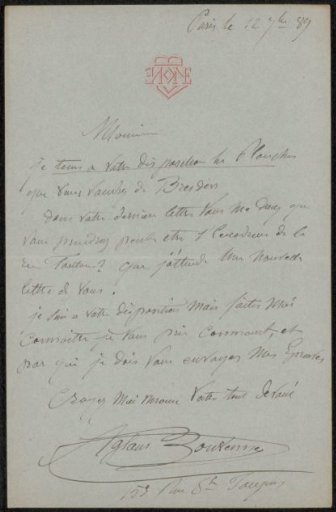 Paris le 12 7bre 89
Monsieur
Je tiens a votre disposition les Planches
que vous de Bresdin
dans votre dernière lettre vous me dites que
vous prendrez peut etre l' de la
que j'attende une nouvelle
lettre de vous.
je suis a votre disposition mais faites moi
connaitre je vous prie comment, et
par qui je dois vous envoyer mes Epreuves
Croyez moi Monsieur Votre tout devoué
Aglaus Bouvenne
Rue St Jacques